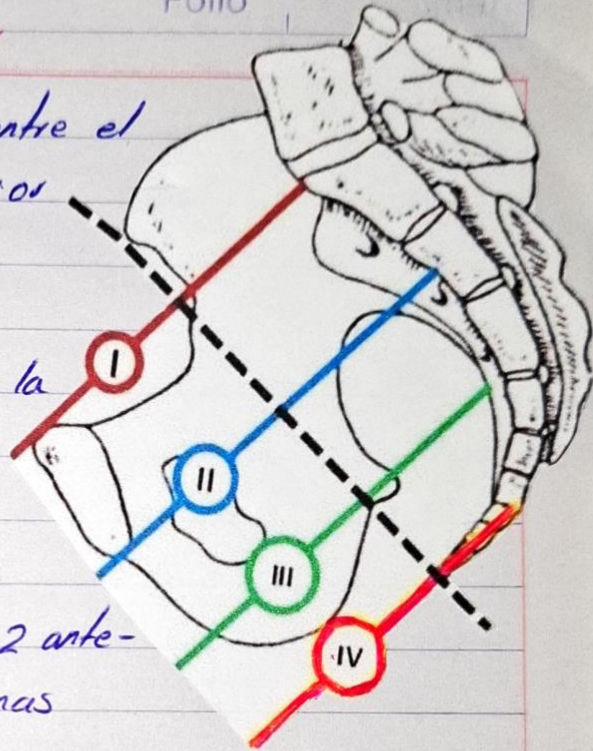 Folio
ntre el
or
I
la
II
III
2 ante-
IV
nas